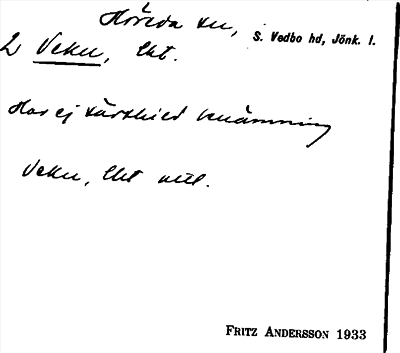 Höreda sn, S. Vedbo hd, Jönk. l.
2 Veku, lht.
Har ej särskild benämning
Veku, lht
FRITZ ANDERSSON 1933